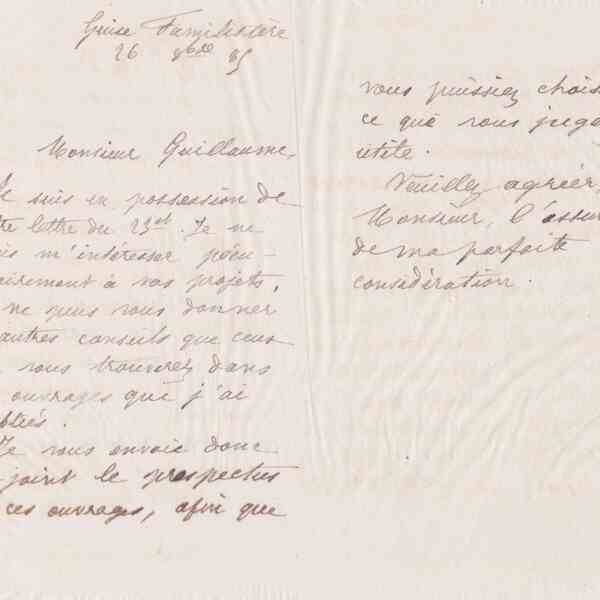 Guise Familistère
26 8bre 85
Monsieur Guillaume,
Je suis en possession de
tre lettre du 23 ct. Je ne
is m'intéresser pécu-
airement à vos projets,
ne puis vous donner
autres conseils que ceux
vous trouverez dans
ouvrages que j'ai
bliés.
Je vous envoie donc
joint le prospectus
ces ouvrages, afin que
vous puissiez chois
ce que vous juge
utile.
Veuillez agréer,
Monsieur, l'assur
de ma parfaite
considération.